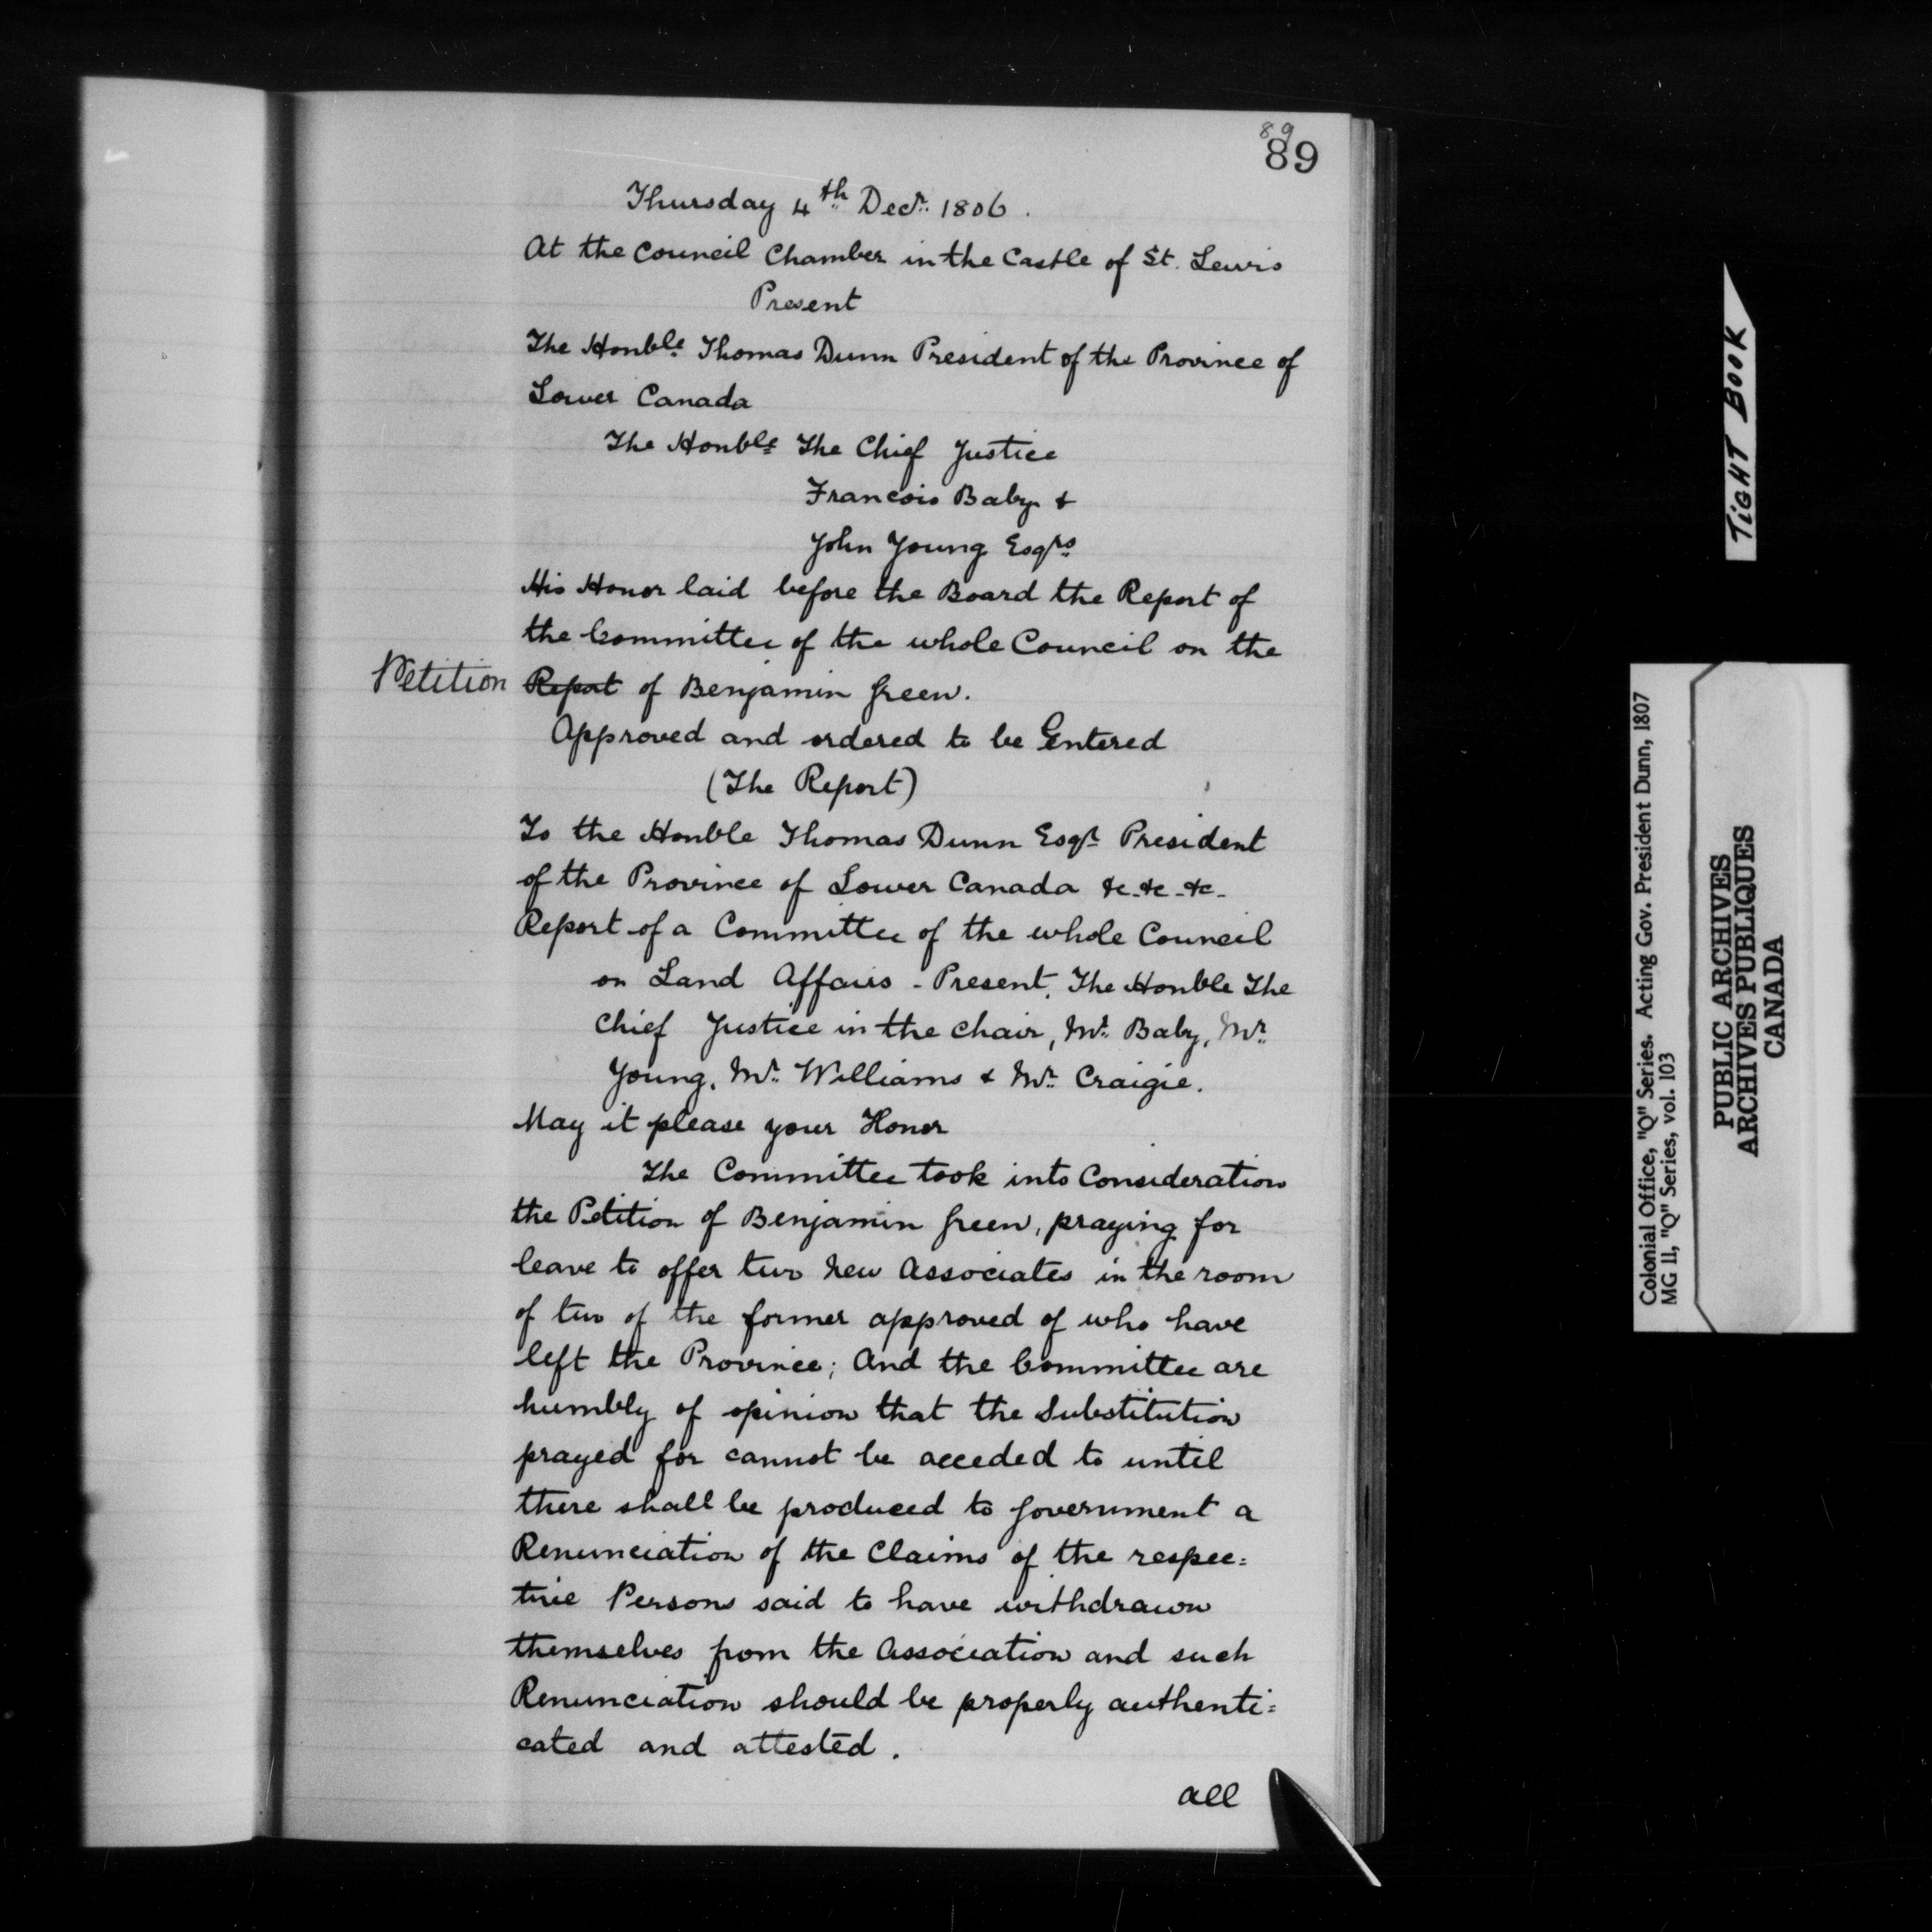 89
89
Thursday 4th Decr. 1806.
At the Council Chamber in the Castle of St. Lewis
Present
The Honble. Thomas Dunn President of the Province of
Lower Canada
The Honble. The Chief Justice
Francois Baby &
John Young Esqrs.
His Honor laid before the Board the Report of
the Committee of the whole Council on the
Petition Report of Benjamin Green.
Approved and ordered to be Entered
(The Report)
To the Honble Thomas Dunn Esqr. President
of the Province of Lower Canada &c-&c-&c-
Report of a Committee of the whole Council
on Land Affairs - Present, The Honble The
Chief Justice in the chair, Mr. Baby, Mr.
Young, Mr. Williams & Mr. Craigie.
May it please your Honor
The Committee took into Consideration
the Petition of Benjamin Green, praying for
leave to offer two new Associates in the room
of two of the former approved of who have
left the Province; And the Committee are
humbly of opinion that the Substitution
prayed for cannot be acceded to until
there shall be produced to Government a
Renunciation of the Claims of the respec=
tive Persons said to have withdrawn
themselves from the Association and such
Renunciation should be properly authenti=
cated and attested.
all
TIGHT BOOK
Colonial Office, "Q" Series. Acting Gov. President Dunn, 1807
MG 11, "Q" Series, vol. 103
PUBLIC ARCHIVES
ARCHIVES PUBLIQUES
CANADA